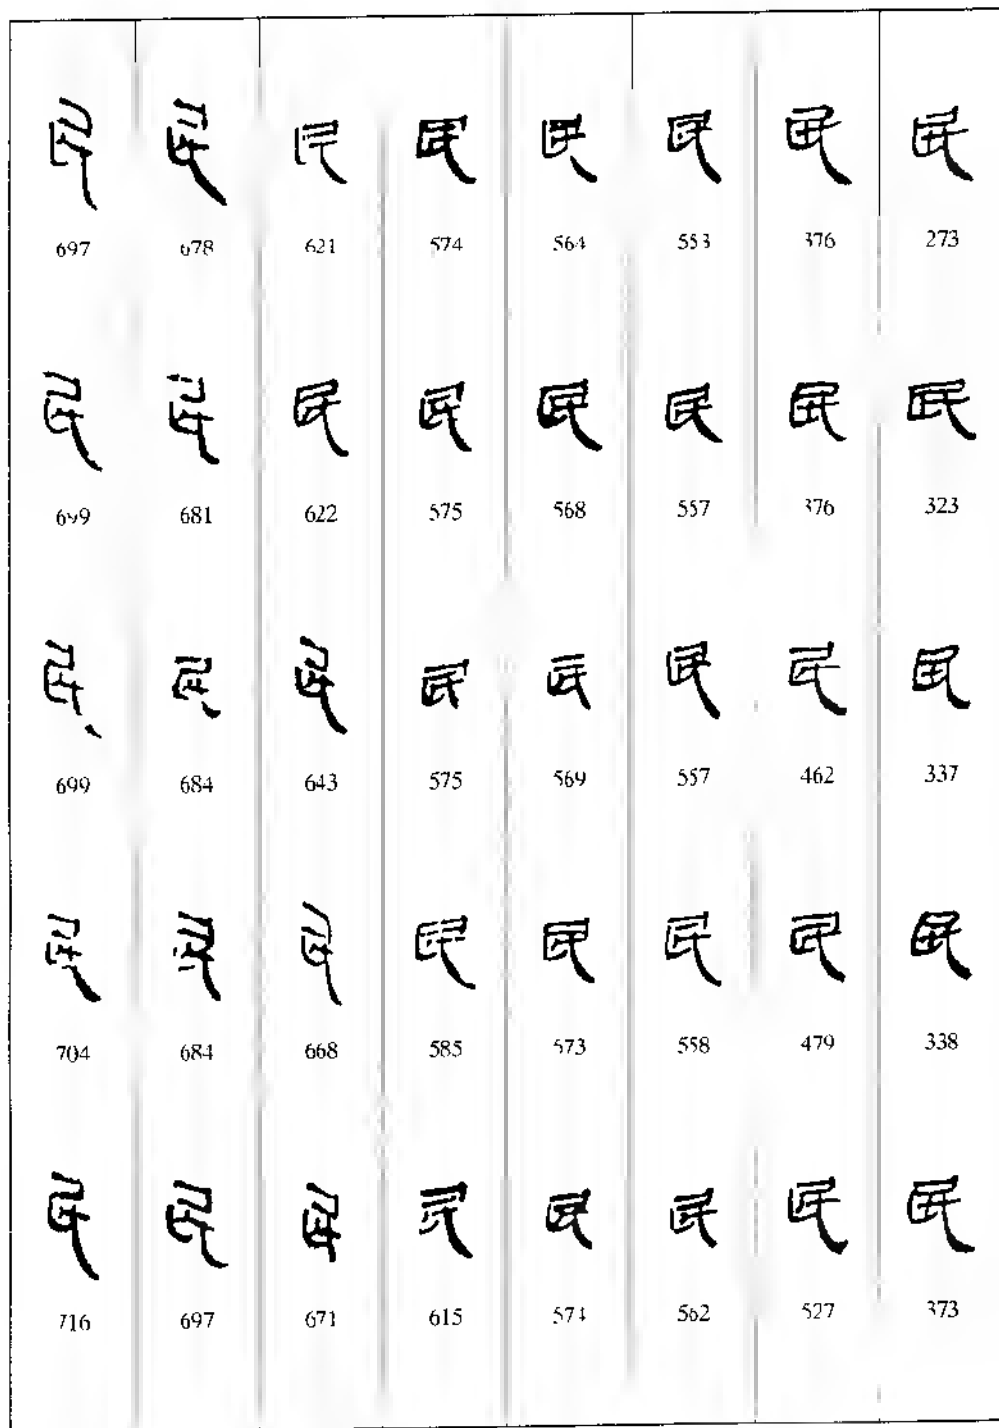 民
273
民
323
民
337
民
338
民
373
民
376
民
376
民
462
民
479
民
527
民
553
民
557
民
557
民
558
民
562
民
564
民
568
民
569
民
573
民
574
民
574
民
575
民
575
民
585
民
615
民
621
民
622
民
643
民
668
民
671
民
678
民
681
民
684
民
684
民
697
民
697
民
699
民
699
民
704
民
716